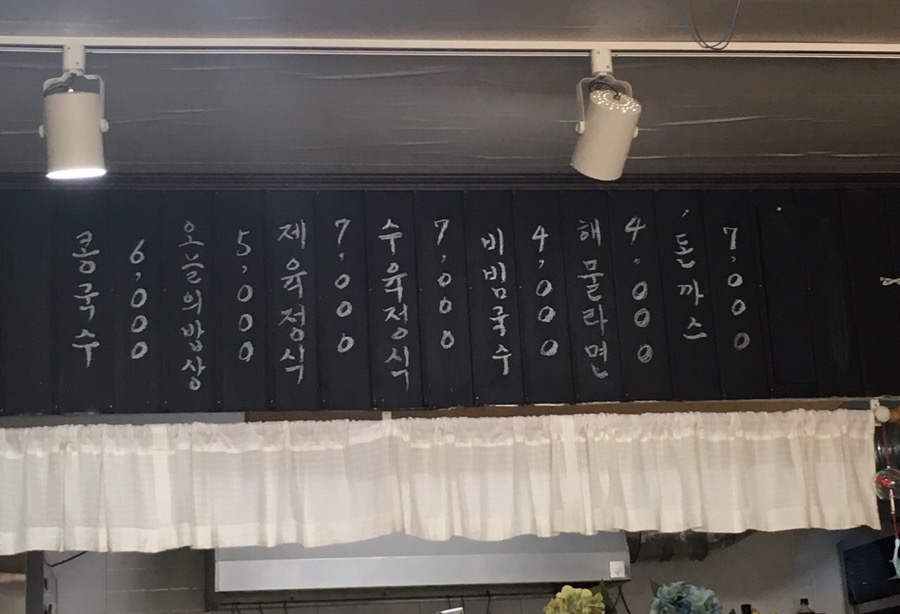 콩국수
6,000
오늘의밥상
5,000
제육정식
7,000
수육정식
7,000
비빔국수
4,000
해물라면
4,000
돈까스
7,000